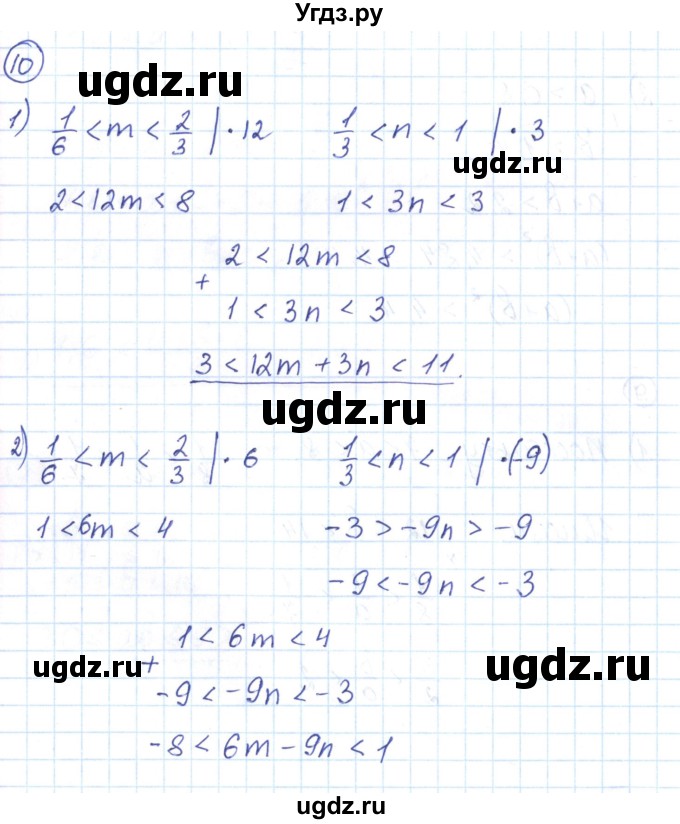 Угдз.ру
10
ugdz.ru
1) 1/6 < m < 2/3 | · 12 1/3 < n < 1 | · 3
ugdz.ru
2 < 12m < 8 1 < 3n < 3
2 < 12m < 8
+
1 < 3n < 3
3 < 12m + 3n < 11.
ugdz.ru
2) 1/6 < m < 2/3 | · 6 1/3 < n < 1 | · (-9)
1 < 6m < 4 -3 > -9n > -9
-9 < -9n < -3
1 < 6m < 4
ugdz.ru + ugdz.ru
-9 < -9n < -3
-8 < 6m - 9n < 1
ugdz.ru